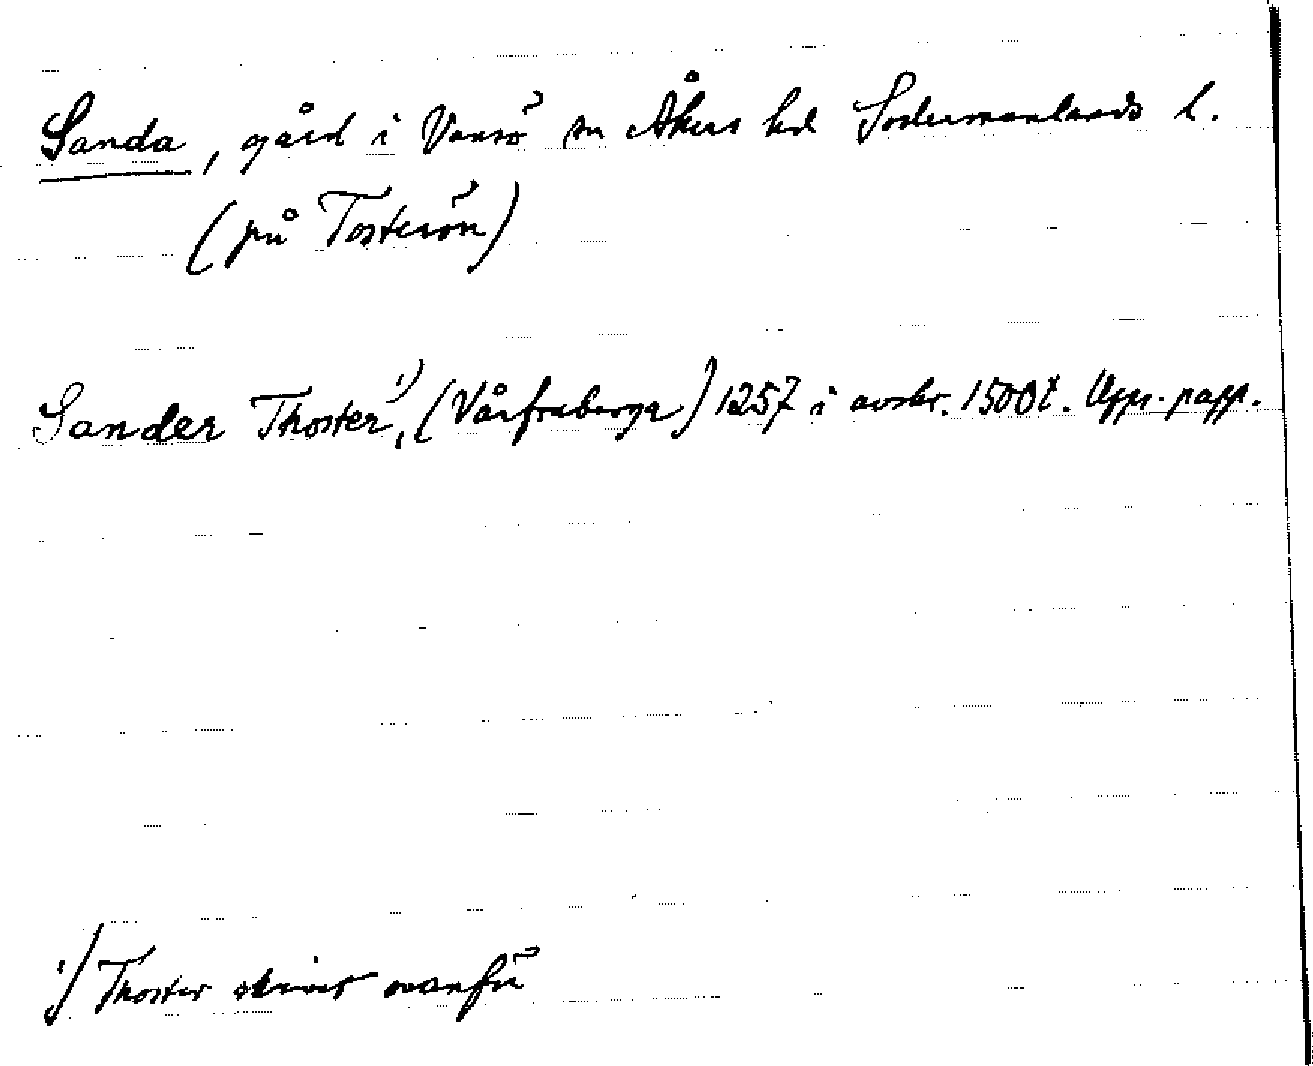 Sanda, gård i Vansö sn Åkers hd Södermanlands l.
(på Tosterön)
Sander Thoster¹⁾, (Vårfruberga) 1257 i avskr. 1500t. Upps. papp.
¹⁾ Thoster skrivet ovanför